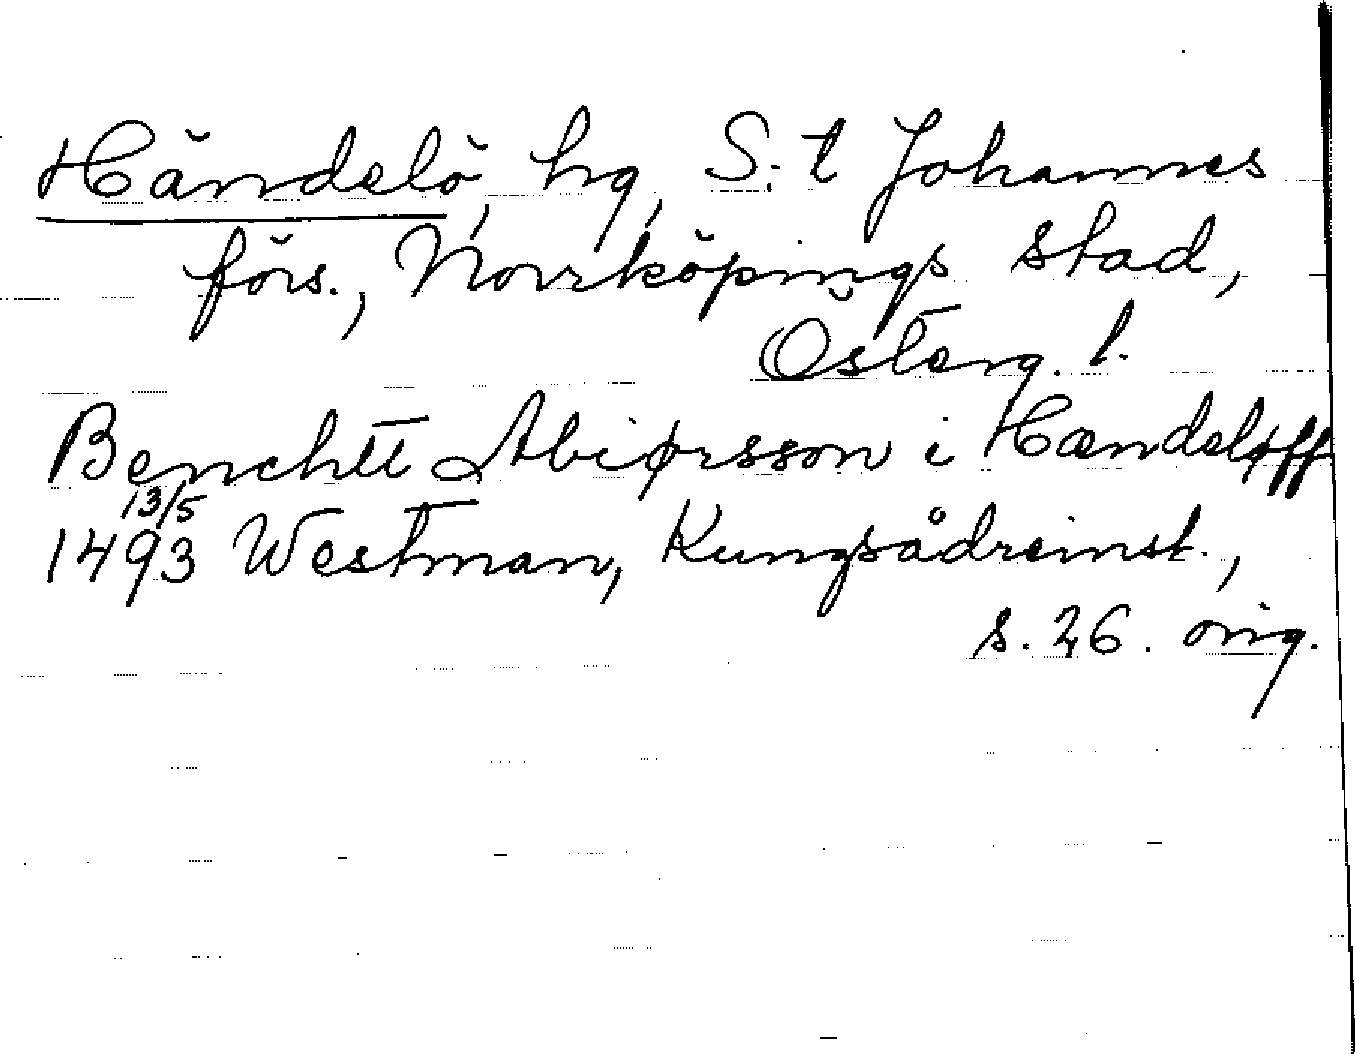 Händelö, hg, S:t Johannes
förs., Norrköpings stad,
Österg. l.
Benchtt Abiørsson i Hændeløff
13/5
1493 Westman, Kungsådreinst.,
s. 26. orig.